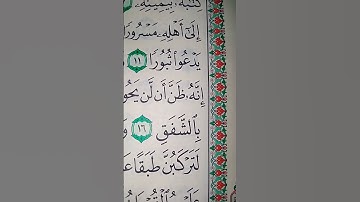 كِتَٰبَهُۥ بِيَمِينِهِۦ
إِلَىٰٓ أَهْلِهِۦ مَسْرُورًا
يَدْعُوا۟ ثُبُورًا ١١
إِنَّهُۥ ظَنَّ أَن لَّن يَحُورَ
بِٱلشَّفَقِ ١٦
لَتَرْكَبُنَّ طَبَقًا
عَلَيْهِمُ ٱلْقُرْءَانُ